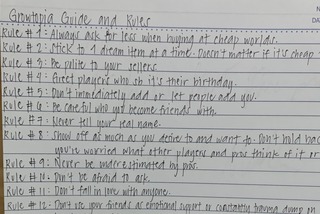 Growtopia Guide and Rules
Rule #1: Always ask for less when buying at cheap worlds.
Rule #2: Stick to 1 dream item at a time. Doesn't matter if it's cheap
Rule #3: Be polite to your sellers
Rule #4: Greet players who sb it's their birthday.
Rule #5: Don't immediately add or let people add you.
Rule #6: Be careful who you become friends with.
Rule #7: Never tell your real name.
Rule #8: Show off as much as you desire to and want to. Don't hold bac
you're worried what other players and pros think of it or
Rule #9: Never be underestimated by pros.
Rule #10: Don't be afraid to ask.
Rule #11: Don't fall in love with anyone.
Rule #12: Don't use your friends as emotional support or constantly trauma dump on